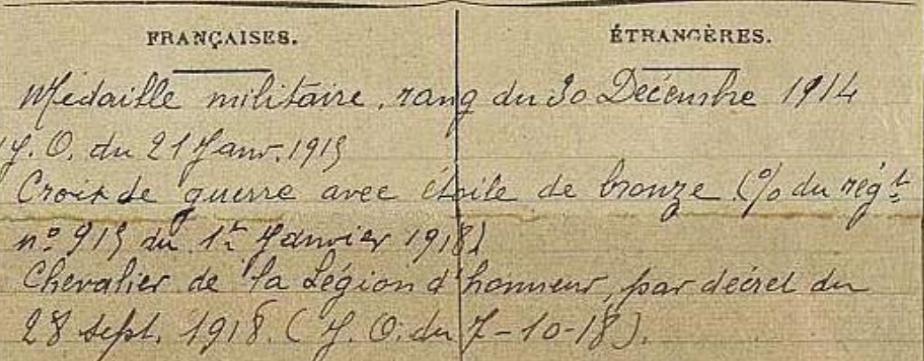 FRANÇAISES.
ÉTRANGÈRES.
Médaille militaire, rang du 30 Décembre 1914
J.O. du 21 Janv. 1915
Croix de guerre avec étoile de bronze (% du régt
nº 915 du 1er Janvier 1918)
Chevalier de la Légion d'honneur, par décret du
28 sept. 1918. (J.O. du 7-10-18).